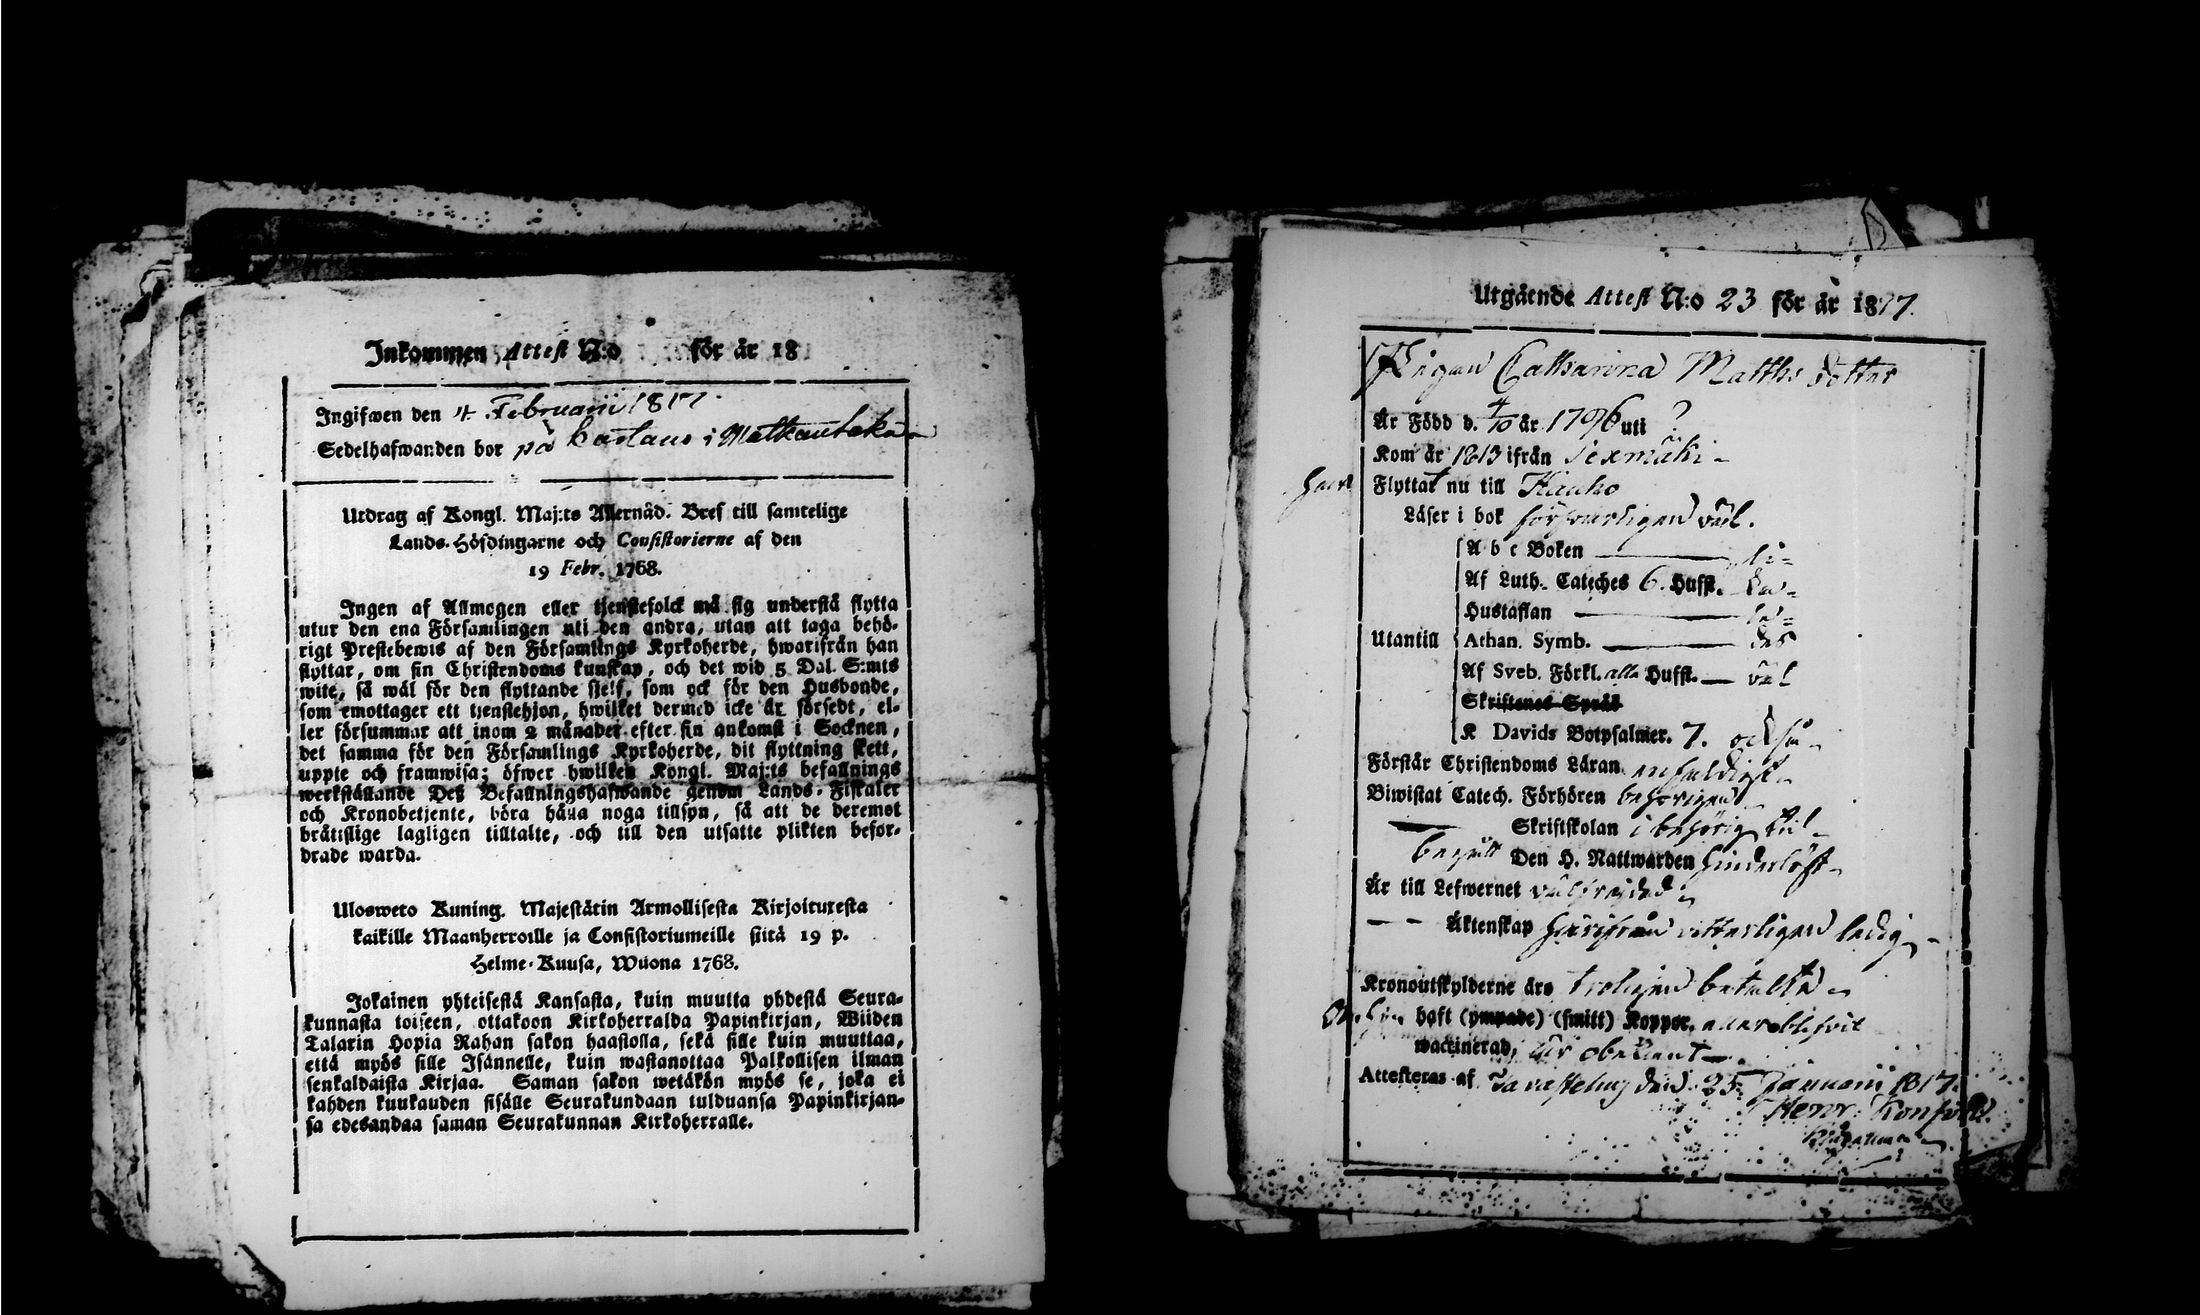 Inkommen Attest N:o för år 18
Ingifwen den 4. Februarii 1817.
Sedelhafwanden bor på i
Utdrag af Kongl. Maj:ts Allernåd. Bref till samtelige
Lands-Höfdingarne och Consistorierne af den
19 Febr. 1768.
Ingen af Allmogen eller tjenstefolck må sig understå flytta
utur den ena Församlingen uti den andra, utan att taga behö-
rigt Prestebewis af den Församlings Kyrkoherde, hwarifrån han
flyttar, om sin Christendoms kunskap, och det wid 5 Dal. S:mts
wite, så wäl för den flyttande sjelf, som ock för den Husbonde,
som emottager ett tjenstehjon, hwilket dermed icke är försedt, el-
ler försummar att inom 2 månader efter sin ankomst i Socknen,
det samma för den Församlings Kyrkoherde, dit flyttning skett,
uppte och framwisa; öfwer hwilken Kongl. Maj:ts befallnings
werkställande Deß Befallningshafwande genom Lands-Fiskaler
och Kronobetjente, böra hålla noga tillsyn, så att de deremot
bråttslige lagligen tilltalte, och till den utsatte plikten befor-
drade warda.
Ulosweto Kuning. Majestätin Armollisesta Kirjoituxesta
kaikille Maanherroille ja Consistoriumeille siitä 19 p.
Helme-Kuusa, Wuona 1768.
Jokainen yhteisestä Kansasta, kuin muutta yhdestä Seura-
kunnasta toiseen, ottakoon Kirkoherralda Papinkirjan, Wiiden
Talarin Hopia Rahan sakon haastolla, sekä sille kuin muuttaa,
että myös sille Isännelle, kuin wastanottaa Palkollisen ilman
senkaldaista Kirjaa. Saman sakon wetäkön myös se, joka ei
kahden kuukauden sisälle Seurakundaan tulduansa Papinkirjan-
sa edesandaa saman Seurakunnan Kirkoherralle.
Utgående Attest N:o 23 för år 1817.
Pigan Catharina Matths dotter
Är Född d. 4/10 år 1796 uti ?
Kom år 1813 ifrån Sexmäki
Flyttat nu till Kauko
Läser i bok försvarligen väl.
A b c Boken
Af Luth. Cateches 6. Hufst.
Hustaflan
Utantill Athan. Symb.
Af Sveb. Förkl. alla Hufst. väl
Skriftenes Språk
K Davids Botpsalmer. 7. också
Förstår Christendoms Läran enfaldigt
Biwistat Catech. Förhören behörigen
Skriftskolan i behörig tid
begått Den H. Nattwarden hinderlöst
Är till Lefwernet välfrejdad
Äktenskap härifrån vitterligen ledig
Kronoutskylderne äro troligen betalta
Om hon haft (ympade) (smitt) Koppor, eller blifvit
waccinerad, är obekant
Attesteras af Tavastehus den 25. Januarii 1817.
Henr: